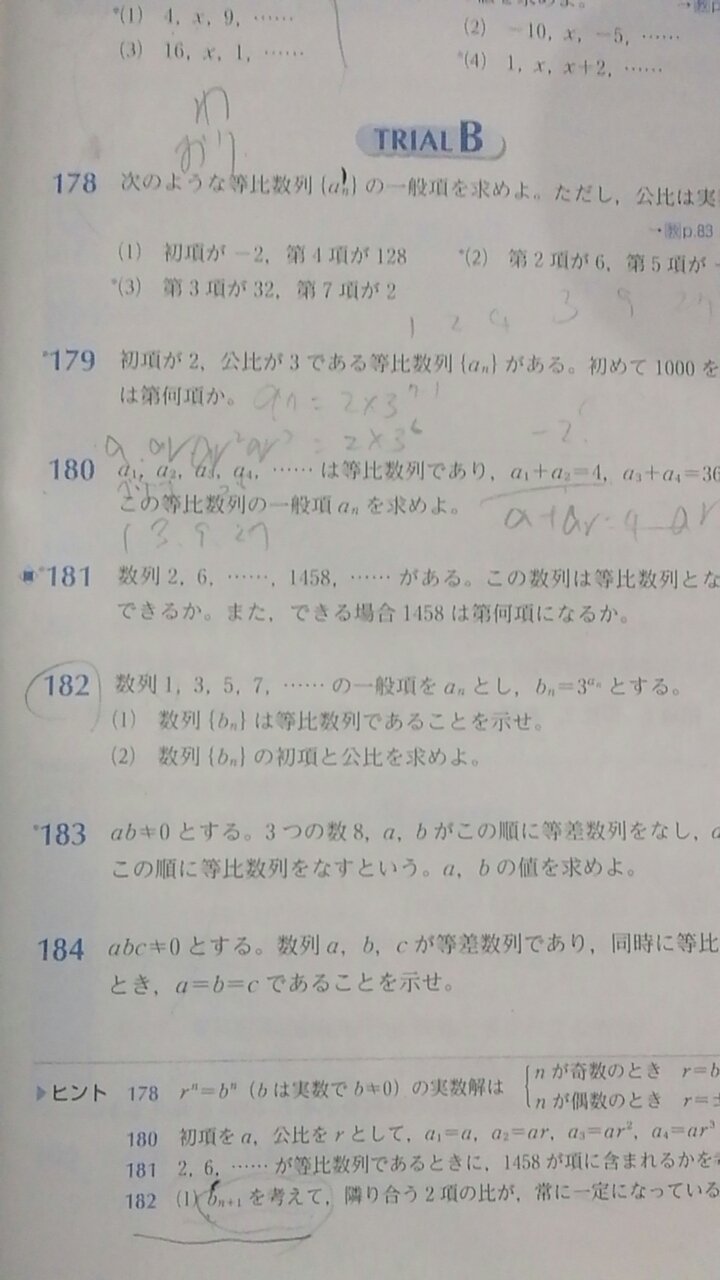 *(1) 4, x, 9, ……
(2) −10, x, −5, ……
(3) 16, x, 1, ……
*(4) 1, x, x+2, ……
TRIAL B
178 次のような等比数列{aₙ}の一般項を求めよ。ただし，公比は実
→教p.83
(1) 初項が −2，第 4 項が 128
*(2) 第 2 項が 6，第 5 項が
*(3) 第 3 項が 32，第 7 項が 2
1 2 4 3 9 27
*179 初項が 2，公比が 3 である等比数列{aₙ}がある。初めて 1000 を
は第何項か。
an = 2×3ⁿ⁻¹
= 2×3⁶
a ar ar² ar³
180 a₁, a₂, a₃, a₄, …… は等比数列であり，a₁+a₂=4, a₃+a₄=36
この等比数列の一般項 aₙ を求めよ。
a+ar=4 ar
1 3. 9. 27
*181 数列 2, 6, ……, 1458, …… がある。この数列は等比数列とな
できるか。また，できる場合 1458 は第何項になるか。
182 数列 1, 3, 5, 7, …… の一般項を aₙ とし，bₙ=3^{aₙ} とする。
(1) 数列{bₙ}は等比数列であることを示せ。
(2) 数列{bₙ}の初項と公比を求めよ。
*183 ab≠0 とする。3 つの数 8, a, b がこの順に等差数列をなし，
この順に等比数列をなすという。a, b の値を求めよ。
184 abc≠0 とする。数列 a, b, c が等差数列であり，同時に等比
とき，a=b=c であることを示せ。
▶ヒント 178 rⁿ=bⁿ（b は実数で b≠0）の実数解は
n が奇数のとき r=b
n が偶数のとき r=±
180 初項を a，公比を r として，a₁=a, a₂=ar, a₃=ar², a₄=ar³
181 2, 6, …… が等比数列であるときに，1458 が項に含まれるかを
182 (1) bₙ₊₁ を考えて，隣り合う 2 項の比が，常に一定になっている